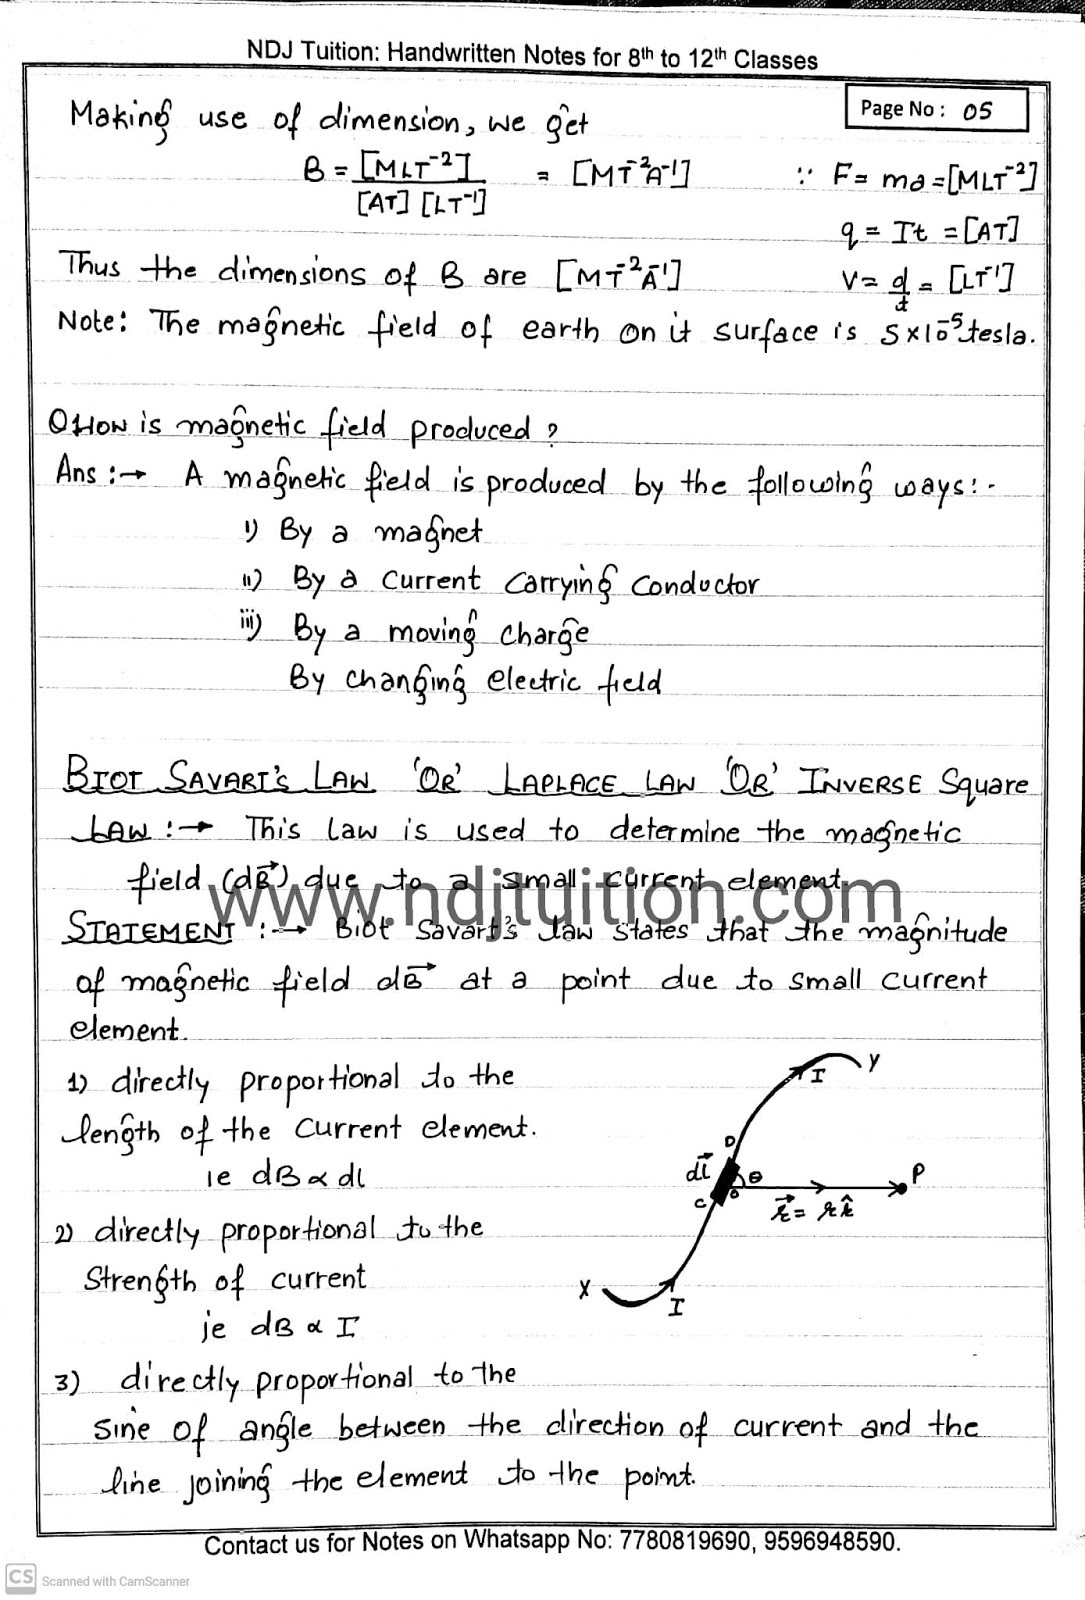 NDJ Tuition: Handwritten Notes for 8th to 12th Classes
Page No : 05
Making use of dimension, we get
B = [MLT⁻²] / [AT] [LT⁻¹] = [MT⁻²A⁻¹] ∵ F = ma = [MLT⁻²]
q = It = [AT]
Thus the dimensions of B are [MT⁻²A⁻¹] V = d/t = [LT⁻¹]
Note: The magnetic field of earth on it surface is 5×10⁻⁵ tesla.
Q How is magnetic field produced ?
Ans :→ A magnetic field is produced by the following ways:-
i) By a magnet
ii) By a current carrying conductor
iii) By a moving charge
By changing electric field
BIOT SAVART'S LAW 'OR' LAPLACE LAW 'OR' INVERSE Square
LAW :→ This law is used to determine the magnetic
field (dB⃗) due to a small current element.
www.ndjtuition.com
STATEMENT :→ Biot Savart's law states that the magnitude
of magnetic field dB⃗ at a point due to small current
element.
1) directly proportional to the
length of the current element.
ie dB ∝ dl
2) directly proportional to the
Strength of current
ie dB ∝ I
Y
I
D
dl⃗
θ
P
C
O
r⃗ = r r̂
X
I
3) directly proportional to the
sine of angle between the direction of current and the
line joining the element to the point.
Contact us for Notes on Whatsapp No: 7780819690, 9596948590.
CS Scanned with CamScanner